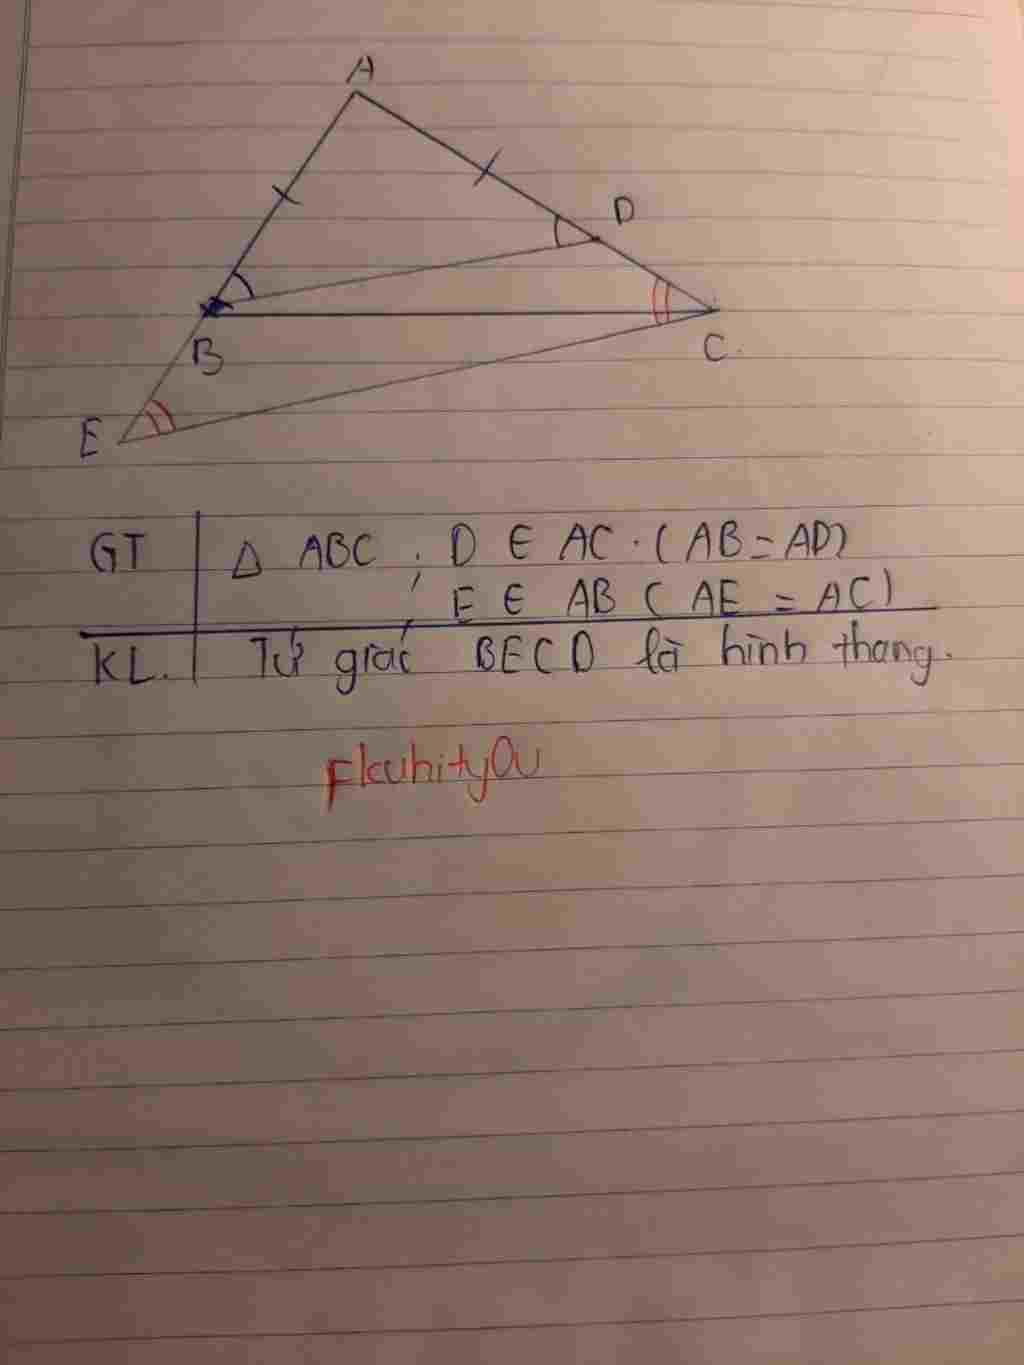 A
D
B
C.
E
GT Δ ABC ; D ∈ AC . ( AB = AD )
; E ∈ AB ( AE = AC )
KL. Tứ giác BECD là hình thang.
FkuhityOu